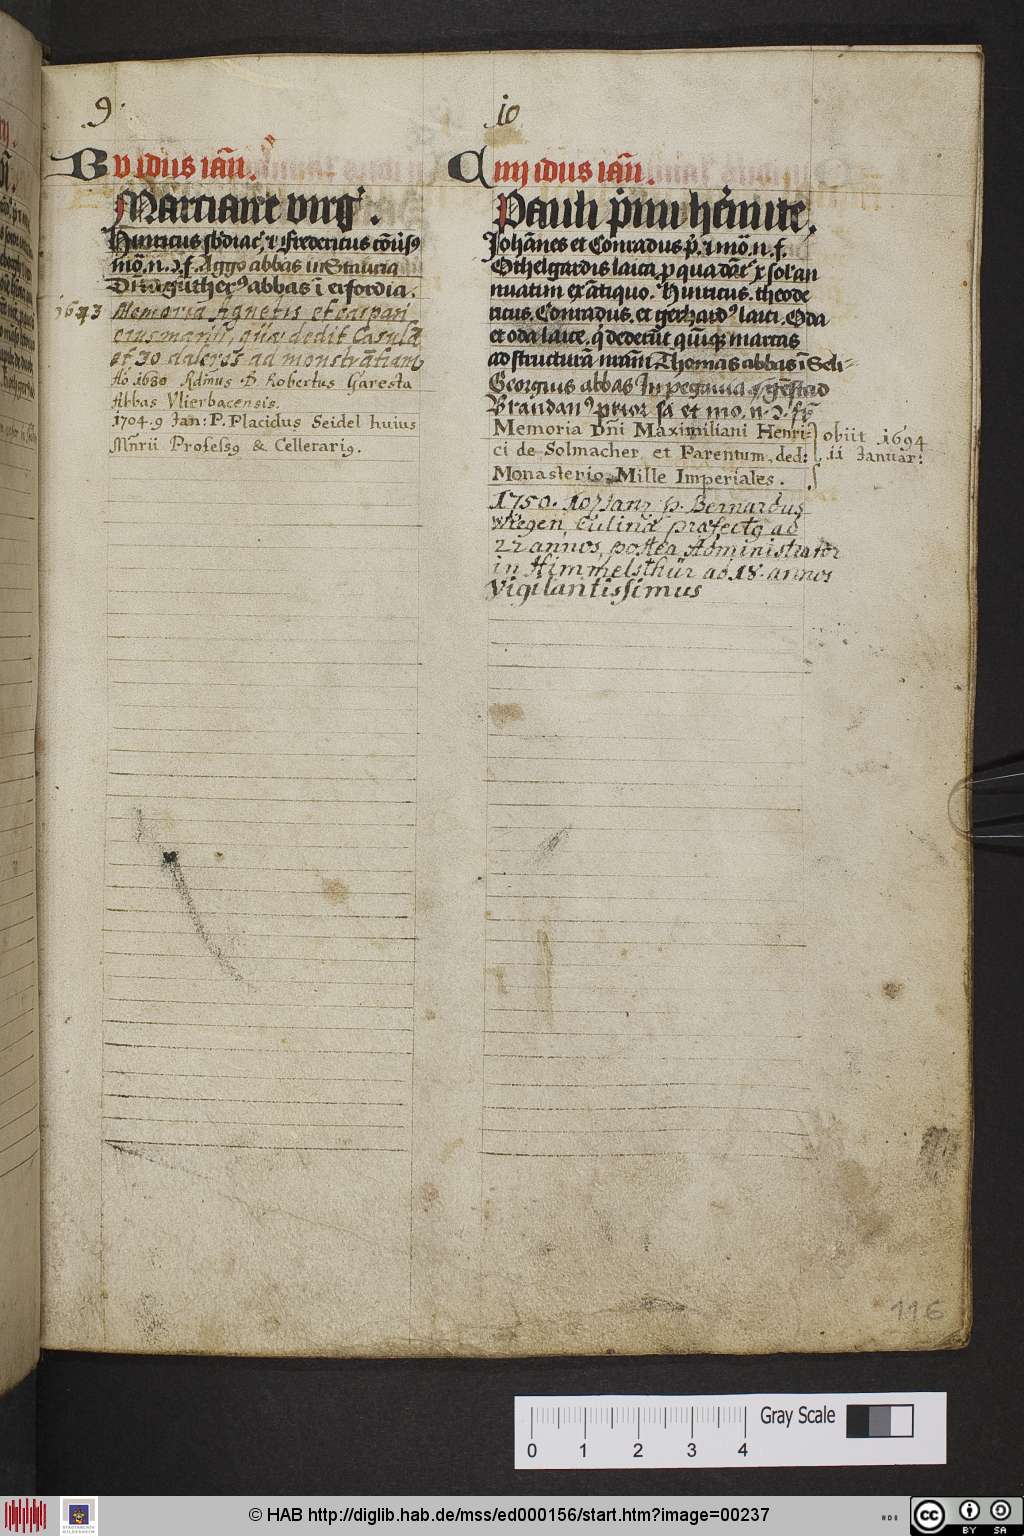 9.
B v idus iañ.
Marciane virg̃.
Hinricus sbdiac', ⁊ Fredericus cõusꝰ
mõ. n. ɔ f. Aggo abbas in Stauria
gũtherꝰ abbas ĩ erfordia.
1643 Memoria Agnetis et Caspari
eius mariti, quæ dedit Casulã
et 30 daleros ad monstrãtiam
Aõ 1680 Rdmus D Robertus Garesta
Abbas Vlierbacensis.
1704. 9 Jan: P. Placidus Seidel huius
Mñrii Professꝰ & Cellerariꝰ.
io
C iiij idus iañ.
Pauli p̃mi h'mite.
Johãnes et Conradus p̃. ⁊ mõ. n. f.
Othelgardis laica, p qua dat' x sol' an
nuatim ex ãtiquo. Hinricus. theode
ricus. Conradus. et gerhardꝰ laici. Oda
et oda laice. q̇ dederũt quĩqꝫ marcas
ad structurã nr̃am Thomas abbas ĩ Sel-
Georgius abbas In pegauia
Brandanꝰ prior sã et mo. n. ɔ. fr̃
Memoria Dñi Maximiliani Henri-
ci de Solmacher et Parentum, ded:
Monasterio Mille Imperiales.
obiit 1694
11 Januar:
1750. 10 Jan: p. Bernardus
Wiegen, Culinæ præfectꝰ ad
22 annos, postea Administrator
in Himmelsthür ad 18. annos
Vigilantissimus
116
0 1 2 3 4
Gray Scale
© HAB http://diglib.hab.de/mss/ed000156/start.htm?image=00237
cc BY SA